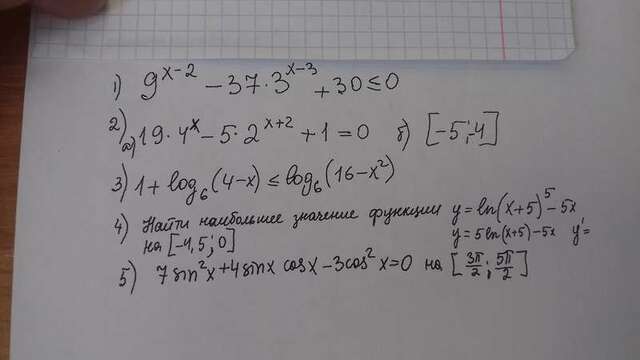 1) 9^(x-2) - 37·3^(x-3) + 30 ≤ 0
2) а) 19·4^x - 5·2^(x+2) + 1 = 0 б) [-5;-4]
3) 1 + log₆(4-x) ≤ log₆(16-x²)
4) Найти наибольшее значение функции y = ln(x+5)⁵ - 5x
на [-4,5;0] y = 5ln(x+5) - 5x y' =
5) 7sin²x + 4sinx cosx - 3cos²x = 0 на [3π/2; 5π/2]